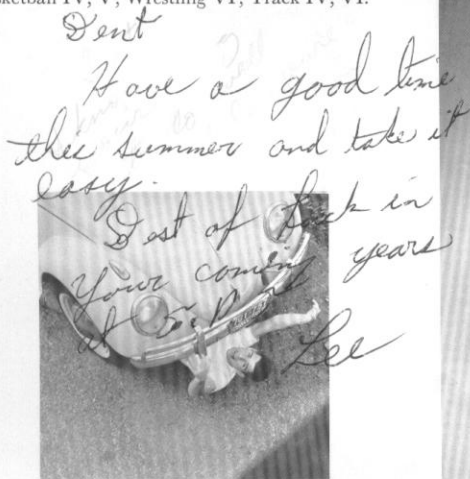 Basketball IV, V; Wrestling VI; Track IV, VI.
Dent
Have a good time
this summer and take it
easy.
Best of luck in
your coming years
at S.P.
Lee